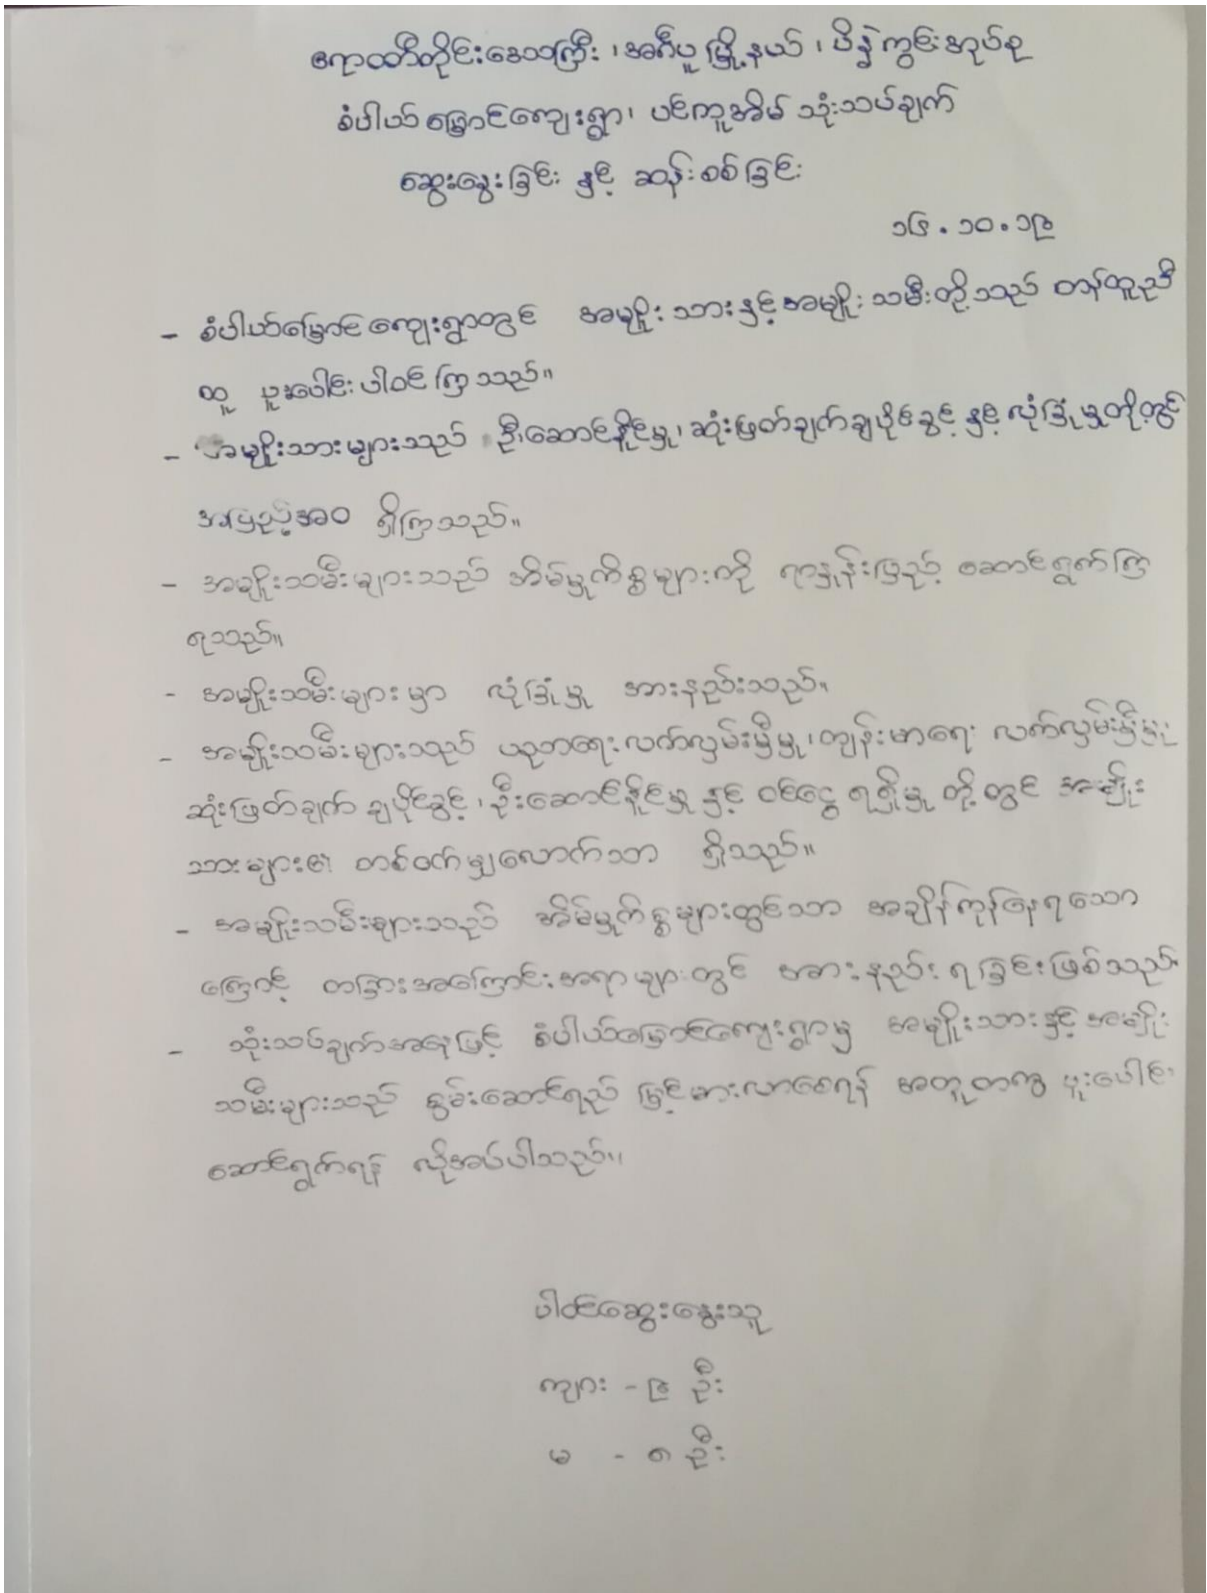 ဧရာဝတီတိုင်းဒေသကြီး ၊ အင်္ဂပူမြို့နယ် ၊ ပိန္နဲကွင်းအုပ်စု
စံပါယ်မြှောင်ကျေးရွာ၊ ပင့်ကူအိမ် သုံးသပ်ချက်
ဆွေးနွေးခြင်း နှင့် ဆန်းစစ်ခြင်း
၁၆.၁၀.၁၉
- စံပါယ်မြှောင်ကျေးရွာတွင် အမျိုးသားနှင့်အမျိုးသမီးတို့သည် တန်တူညီ
တူ ပူးပေါင်းပါဝင်ကြသည်။
- အမျိုးသားများသည် ဦးဆောင်နိုင်မှု၊ ဆုံးဖြတ်ချက်ချပိုင်ခွင့် နှင့် လုံခြုံမှုတို့တွင်
အပြည့်အဝ ရှိကြသည်။
- အမျိုးသမီးများသည် အိမ်မှုကိစ္စများကို ရာနှုန်းပြည့် ဆောင်ရွက်ကြ
ရသည်။
- အမျိုးသမီးများမှာ လုံခြုံမှု အားနည်းသည်။
- အမျိုးသမီးများသည် ပညာရေးလက်လှမ်းမှီမှု ၊ ကျန်းမာရေး လက်လှမ်းမှီမှု၊
ဆုံးဖြတ်ချက် ချပိုင်ခွင့် ၊ ဦးဆောင်နိုင်မှု နှင့် ဝင်ငွေ ရရှိမှု တို့တွင် အမျိုး
သားများ၏ တစ်ဝက်မျှလောက်သာ ရှိသည်။
- အမျိုးသမီးများသည် အိမ်မှုကိစ္စများတွင်သာ အချိန်ကုန်နေရသော
ကြောင့် တခြားအကြောင်းအရာများတွင် အားနည်းရခြင်းဖြစ်သည်။
- သုံးသပ်ချက်အနေဖြင့် စံပါယ်မြှောင်ကျေးရွာမှ အမျိုးသားနှင့် အမျိုး
သမီးများသည် စွမ်းဆောင်ရည် မြင့်မားလာစေရန် အတူတကွ ပူးပေါင်း
ဆောင်ရွက်ရန် လိုအပ်ပါသည်။
ပါဝင်ဆွေးနွေးသူ
ကျား - ၉ ဦး
မ - ၈ ဦး